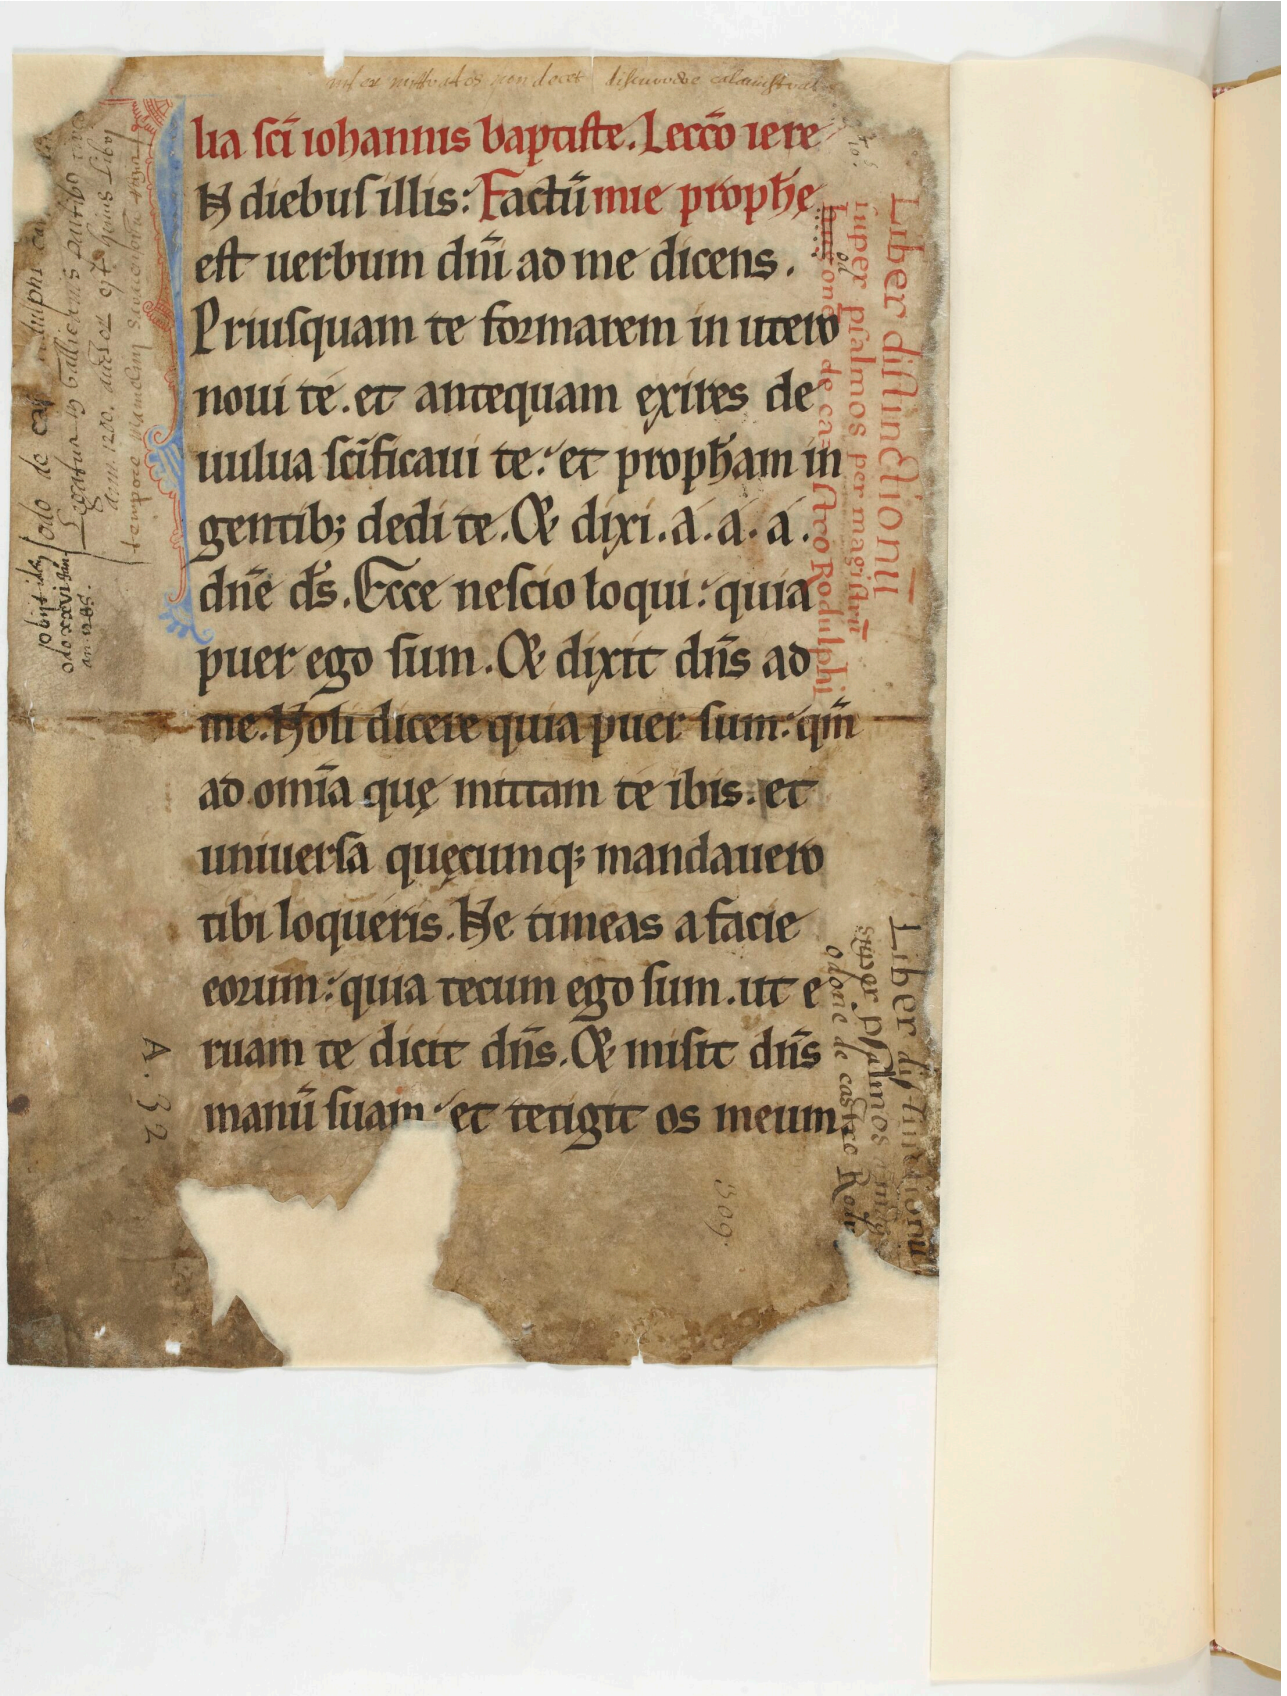 lia sc̄i iohannis baptiste. Lecc̄o iere
N diebus illis: Factū mie proph̄e
est uerbum dn̄i ad me dicens.
Priusquam te formarem in utero
noui te. et antequam exires de
uulua sc̄ificaui te: et proph̄am in
gentib; dedi te. & dixi. a. a. a.
dn̄e d̄s. Ecce nescio loqui: quia
puer ego sum. & dixit dn̄s ad
me. Noli dicere quia puer sum: qm̄
ad om̄ia quę mittam te ibis. et
uniuersa quęcumq; mandauero
tibi loqueris. Ne timeas a facie
eorum: quia tecum ego sum. ut e
ruam te dicit dn̄s. & misit dn̄s
manū suam: et tetigit os meum.
Liber distinctionū
super psalmos per magistrū
odone de castro Rodulphi
Liber distinctionū
super psalmos
odone de castro Rodu
A. 32
309
odo de
an. 1200.
tempore